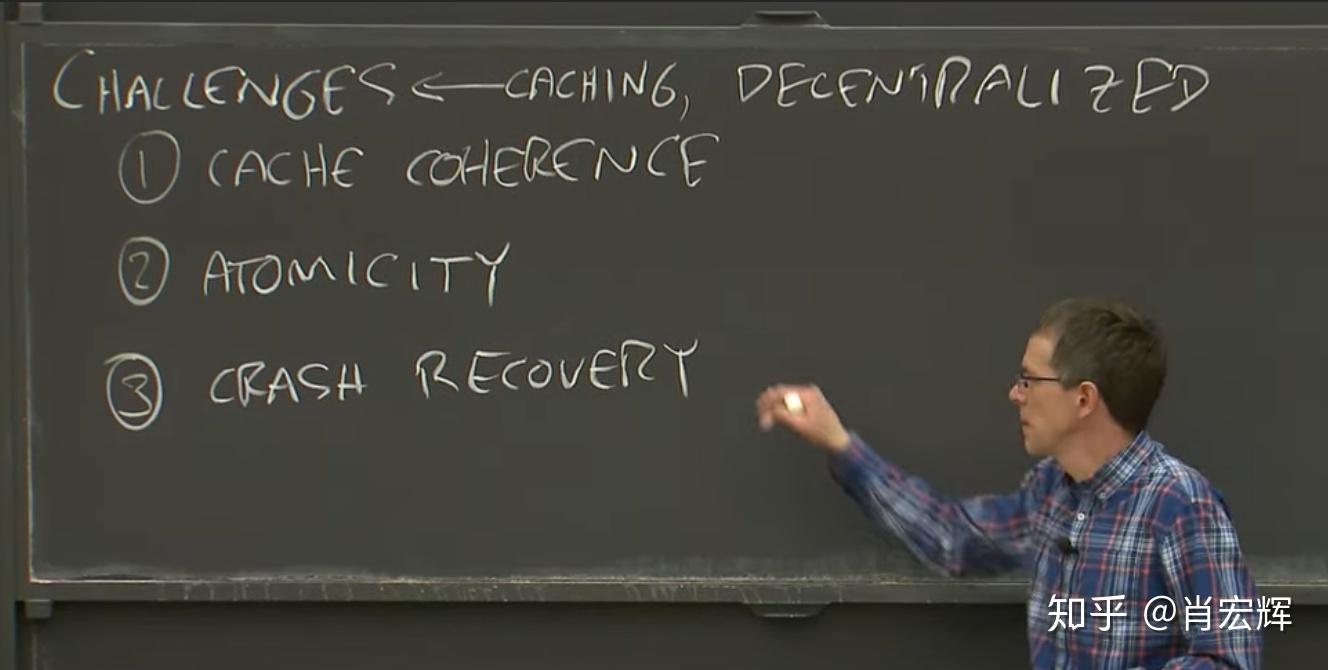 CHALLENGES ← CACHING, DECENTRALIZED
① CACHE COHERENCE
② ATOMICITY
③ CRASH RECOVERY
知乎 @肖宏辉